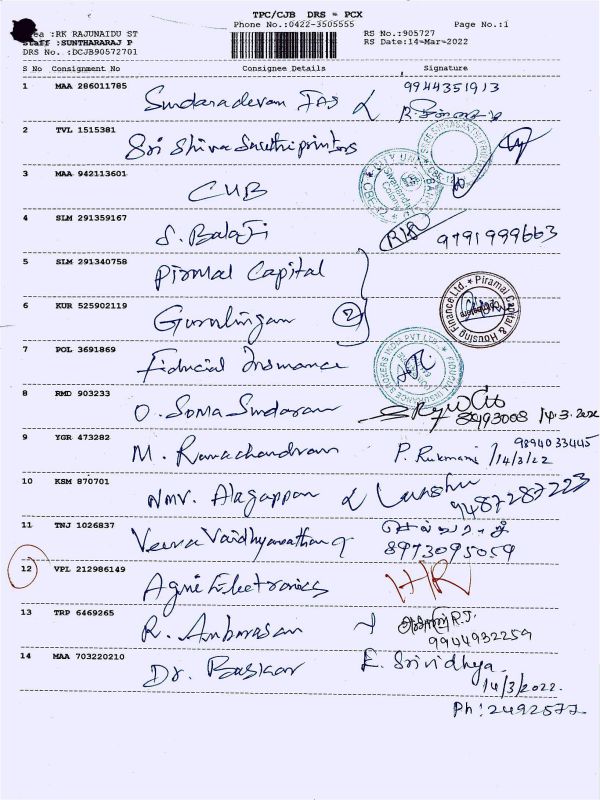 TPC/CJB DRS - PCX
Phone No.:0422-3505555 Page No.:1
:RK RAJUNAIDU ST RS No.:905727
Staff :SUNTHARARAJ P RS Date:14-Mar-2022
DRS No. :DCJB90572701
S No Consignment No Consignee Details Signature
1 MAA 286011785 Sundaradevan 9944351913
2 TVL 1515381 Sri Shiva Sakthi printers
3 MAA 942113601 CUB
4 SLM 291359167 S. Balaji 9791999663
5 SLM 291340758 Pirmal Capital
6 KUR 525902119 Gurulingam 2
Piramal Capital & Housing Finance Ltd.
7 POL 3691869 Fiducial Insurance
8 RMD 903233 O. Soma Sundaram 14.3.2022
9 YGR 473282 M. Ramachandran P. Rukmani 14/3/22
9894033445
10 KSM 870701 NMV. Alagappan & 9487287223
11 TNJ 1026837 8973095059
12 VPL 212986149 Agni Electronics
13 TRP 6469265 R. Anbarasan R.J.
9944932259
14 MAA 703220210 Dr. Baskar E. Srividhya
14/3/2022.
Ph: 2492577